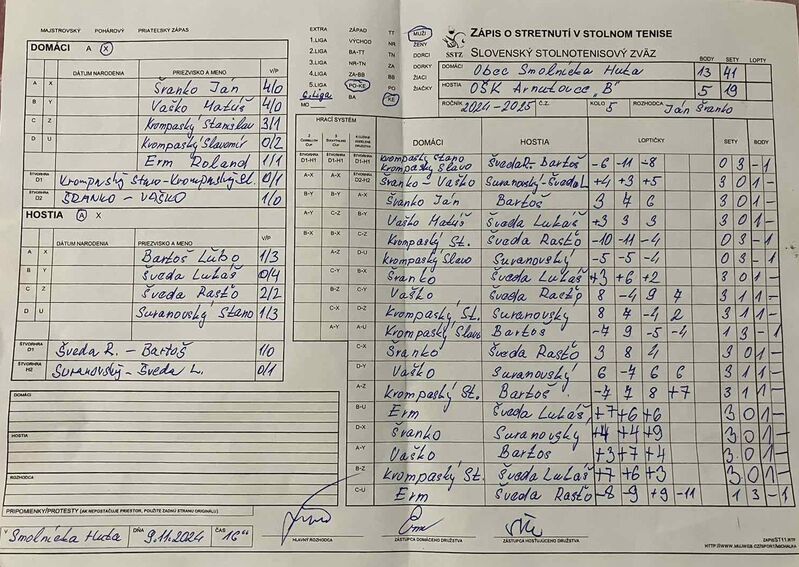 MAJSTROVSKÝ POHÁROVÝ PRIATEĽSKÝ ZÁPAS
DOMÁCI A X
DÁTUM NARODENIA PRIEZVISKO A MENO V/P
A X Šranko Ján 4/0
B Y Vaško Matúš 4/0
C Z Krompaský Stanislav 3/1
D U Krompaský Slavomír 0/2
Erm Roland 1/1
ŠTVORHRA D1 Krompaský Stano-Krompaský Sl. 0/1
ŠTVORHRA D2 ŠRANKO - VAŠKO 1/0
HOSTIA A X
DÁTUM NARODENIA PRIEZVISKO A MENO V/P
A X Bartoš Ľubo 1/3
B Y Šveda Lukáš 0/4
C Z Šveda Rasťo 2/2
D U Suranovský Stano 1/3
ŠTVORHRA D1 Šveda R. - Bartoš 1/0
ŠTVORHRA H2 Suranovský - Šveda L. 0/1
DOMÁCI
HOSTIA
ROZHODCA
PRIPOMIENKY/PROTESTY (AK NEPOSTAČUJE PRIESTOR, POUŽITE ZADNÚ STRANU ORIGINÁLU)
V Smolnícka Huta DŇA 9.11.2024 ČAS 16
HLAVNÝ ROZHODCA
ZÁSTUPCA DOMÁCEHO DRUŽSTVA
ZÁSTUPCA HOSŤUJÚCEHO DRUŽSTVA
EXTRA ZÁPAD TT MUŽI
1.LIGA VÝCHOD NR ŽENY
2.LIGA BA-TT DORCI
3.LIGA NR-TN ZA DORKY
4.LIGA ZA-BB BB ŽIACI
5.LIGA PO-KE PO ŽIAČKY
6.Liga BA KE
MO
SSTZ
ZÁPIS O STRETNUTÍ V STOLNOM TENISE
SLOVENSKÝ STOLNOTENISOVÝ ZVÄZ
BODY SETY LOPTY
DOMÁCI: Obec Smolnícka Huta 13 41
HOSTIA: OŠK Arnutovce „B" 5 19
ROČNÍK 2024-2025 Č.Z. KOLO 5 ROZHODCA Ján Šranko
HRACÍ SYSTÉM
DOMÁCI HOSTIA LOPTIČKY SETY BODY
Krompaský Stano
Krompaský Slavo Šveda R. Bartoš -6 -11 -8 0 3 - 1
Šranko - Vaško Suranovský-Šveda L +4 +3 +5 3 0 1 -
Šranko Ján Bartoš 3 7 6 3 0 1 -
Vaško Matúš Šveda Lukáš +3 3 3 3 0 1 -
Krompaský St. Šveda Rasťo -10 -11 -4 0 3 - 1
Krompaský Slavo Suranovský -5 -5 -4 0 3 - 1
Šranko Šveda Lukáš +3 +6 +2 3 0 1 -
Vaško Šveda Rasťo 8 -4 9 7 3 1 1 -
Krompaský St. Suranovský 8 7 -4 2 3 1 1 -
Krompaský Slavo Bartoš -7 9 -5 -4 1 3 - 1
Šranko Šveda Rasťo 3 8 4 3 0 1 -
Vaško Suranovský 6 -7 6 6 3 1 1 -
Krompaský St. Bartoš -7 7 8 +7 3 1 1 -
Erm Šveda Lukáš +7 +6 +6 3 0 1 -
Šranko Suranovský +4 +4 +9 3 0 1 -
Vaško Bartoš +3 +7 +4 3 0 1 -
Krompaský St. Šveda Lukáš +7 +6 +3 3 0 1 -
Erm Šveda Rasťo -8 -9 +9 -11 1 3 - 1
ZAPISST11.RTF